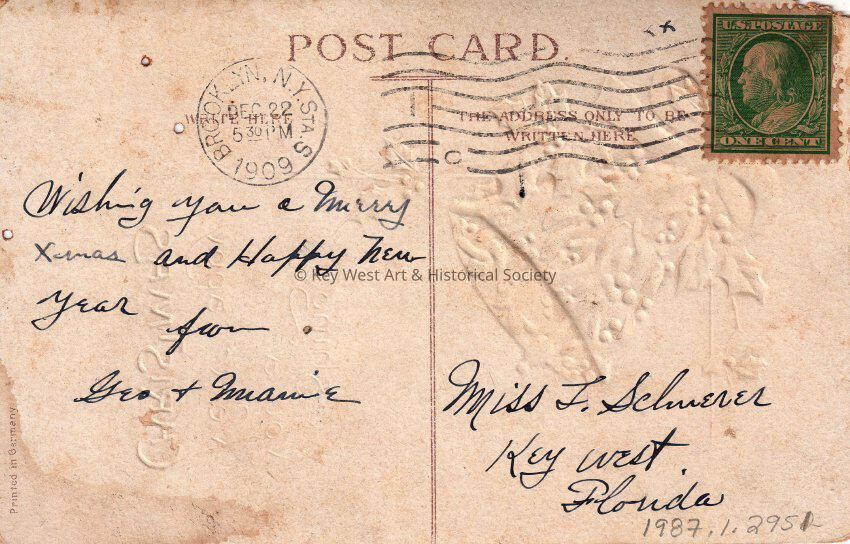 POST CARD.
BROOKLYN, N.Y. STA. S
DEC 22
5 30 PM
1909
U.S. POSTAGE
ONE CENT
WRITE HERE
THE ADDRESS ONLY TO BE
WRITTEN HERE
Wishing you a Merry
X-mas and Happy New
Year from
Geo + Mamie
Miss F. Schwerer
Key West
Florida
1987.1.295
Printed in Germany
CHRISTMAS
© Key West Art & Historical Society